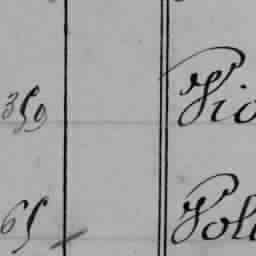 359 Vio
65 Pol